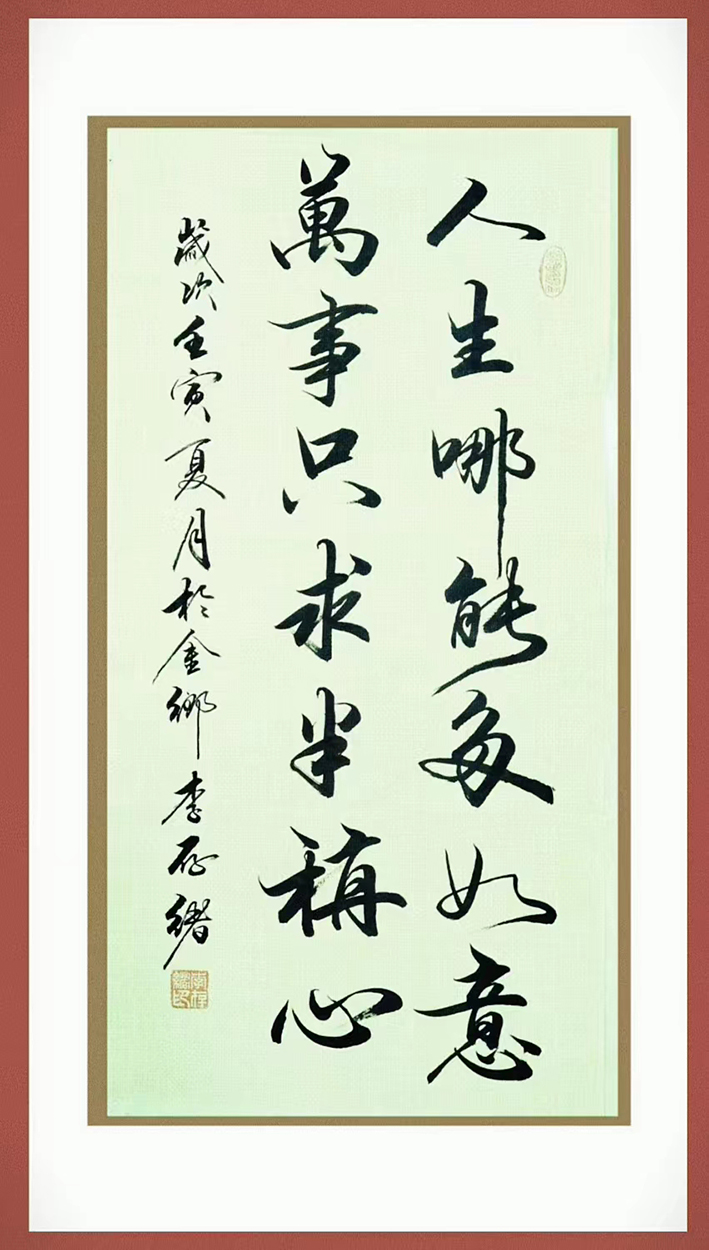 人生哪能多如意
萬事只求半稱心
歲次壬寅夏月於金鄉李存緒